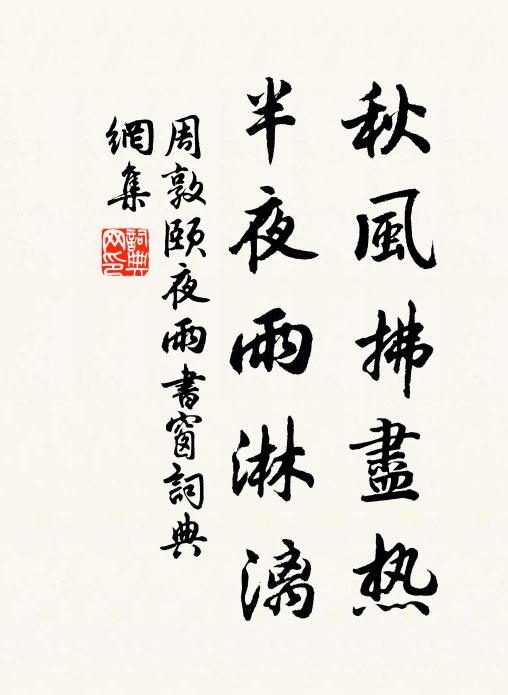 秋風拂盡热
半夜雨淋漓
周敦頤夜雨書窗詞典
網集
詞典網印